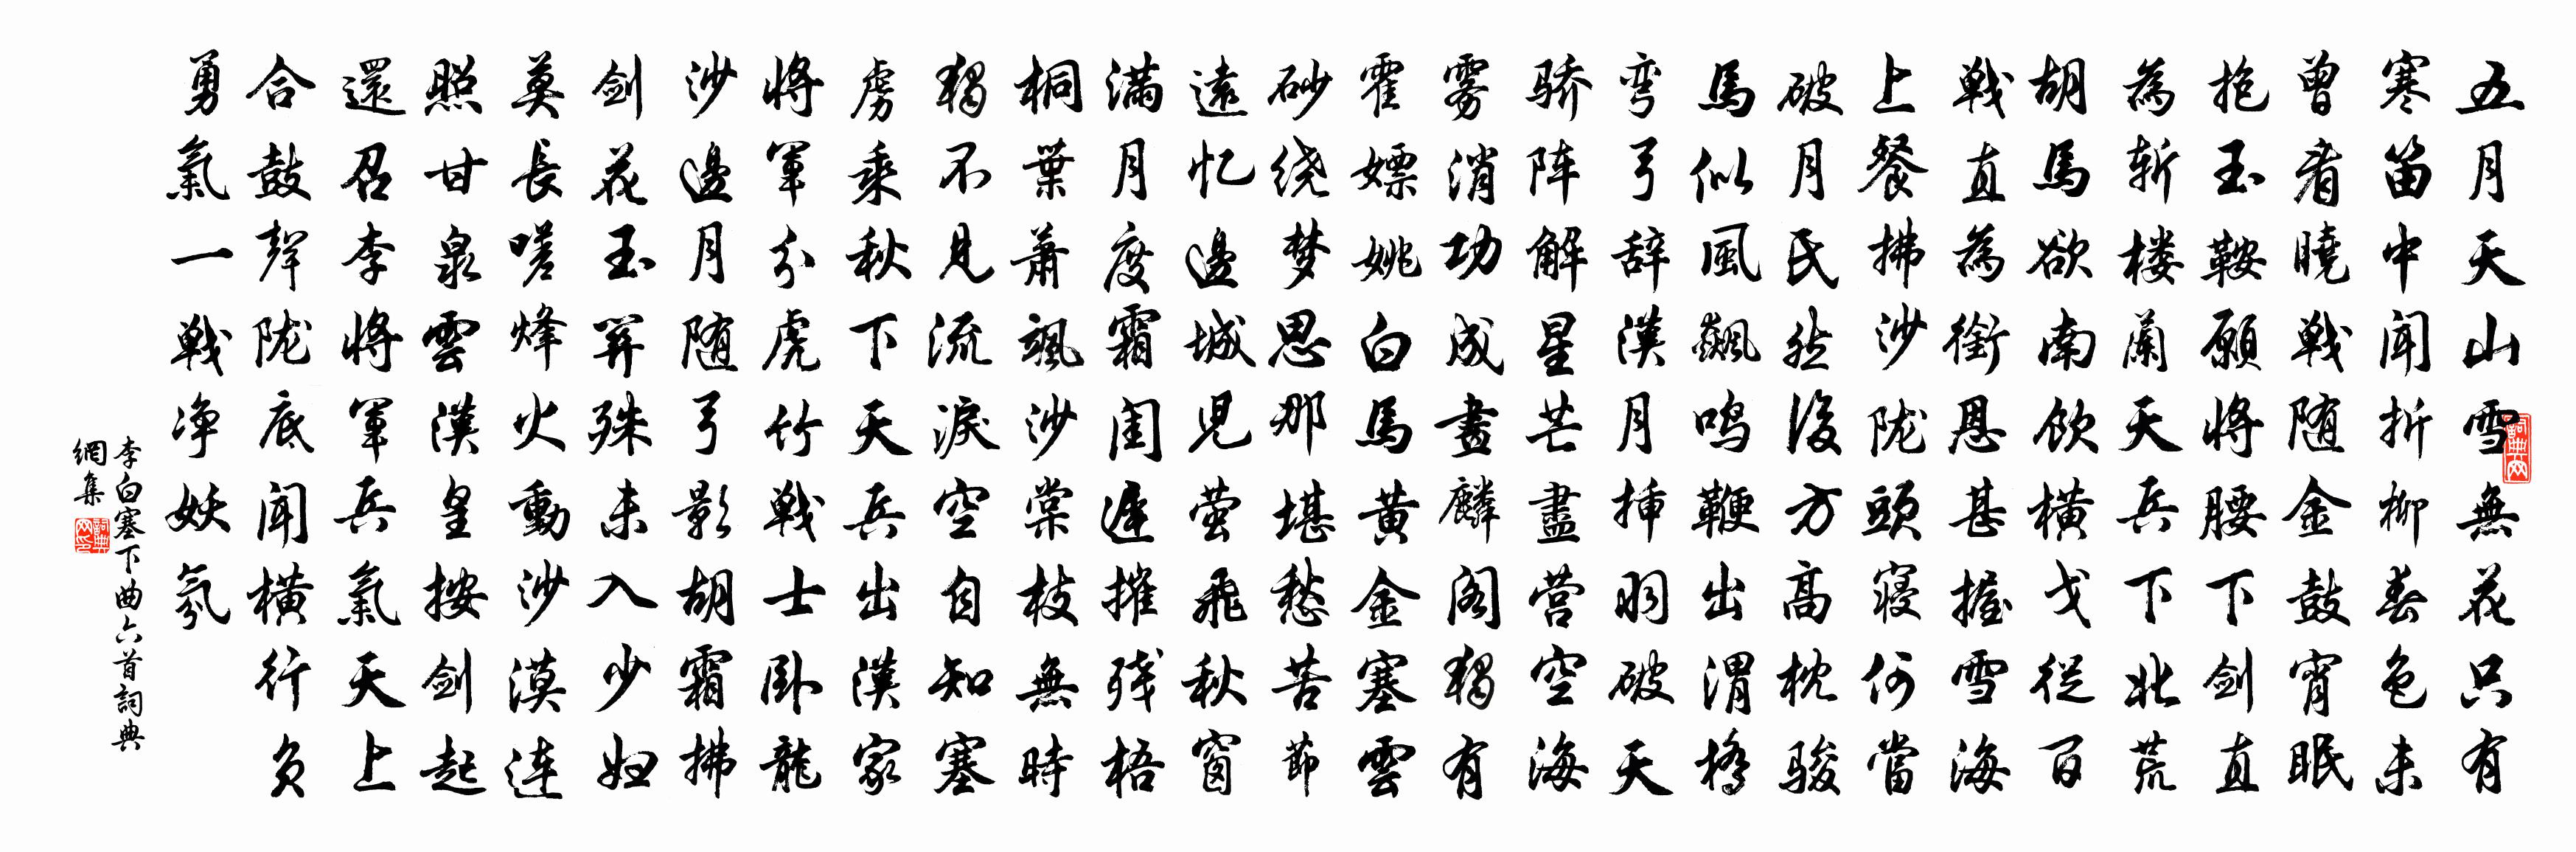 五月天山雪無花只有
寒笛中闻折柳春色未
曾看曉戰随金鼓宵眠
抱玉鞍願将腰下剑直
為斩楼蘭天兵下北荒
胡馬欲南饮横戈從百
戰直為銜恩甚握雪海
上餐拂沙陇頭寝何當
破月氏然後方高枕骏
馬似風飙鸣鞭出渭橋
弯弓辞漢月挿羽破天
骄阵解星芒盡营空海
雾消功成畫麟阁独有
霍嫖姚白馬黄金塞雲
砂绕梦思那堪愁苦節
遠忆邊城児萤飛秋窗
满月度霜闺遲摧残梧
桐葉萧飒沙棠枝無時
独不見流淚空自知塞
虏乘秋下天兵出漢家
将軍分虎竹戰士卧龍
沙邊月随弓影胡霜拂
剑花玉関殊未入少妇
莫長嗟烽火動沙漠连
照甘泉雲漢皇按剑起
還召李将軍兵氣天上
合鼓聲陇底闻横行负
勇氣一戰净妖氛
李白塞下曲六首詞典
網集